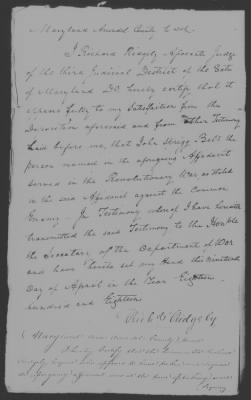 Maryland Arundel County to wit
I Richard Ridgely Associate Judge
of the third Judicial District of the State
of Maryland Do hereby certify that it
appears fully to my Satisfaction from the
Declaration aforesaid and from other Testimony
Laid before me, that John Shegg Bell the
person named in the aforegoing Affidavit
served in the Revolutionary War as stated
in the said Affidavit against the Common
Enemy - In Testimony whereof I have hereunto
transmitted the said Testimony to the Honble
the Secretary of the Department of War
and have hereto set my Hand this nineteenth
Day of April in the Year Eighteen
hundred and Eighteen
Richd Ridgely
Maryland
I hereby Certify that